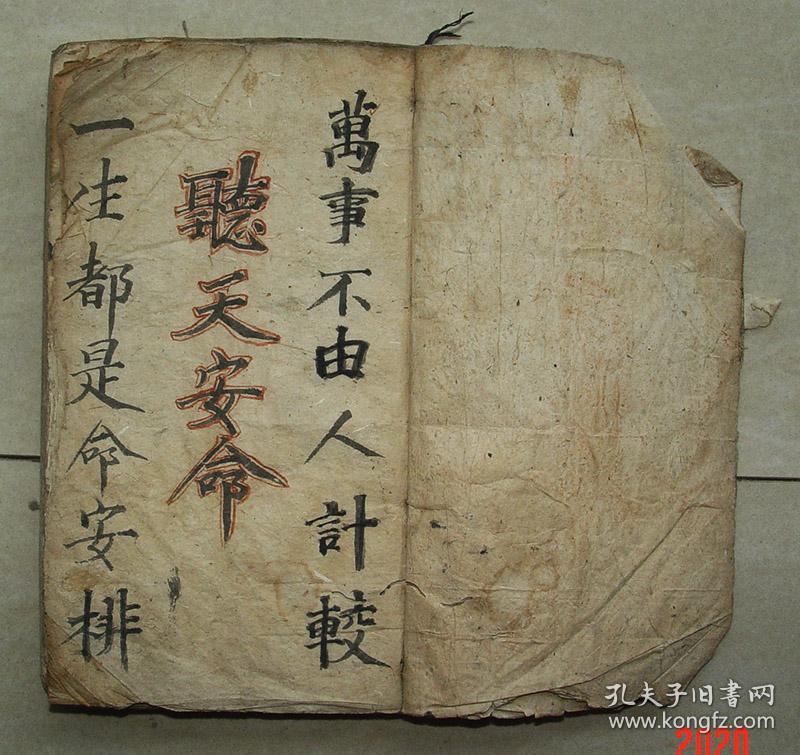 萬事不由人計較
聽天安命
一生都是命安排
孔夫子旧書网
www.kongfz.com
2020